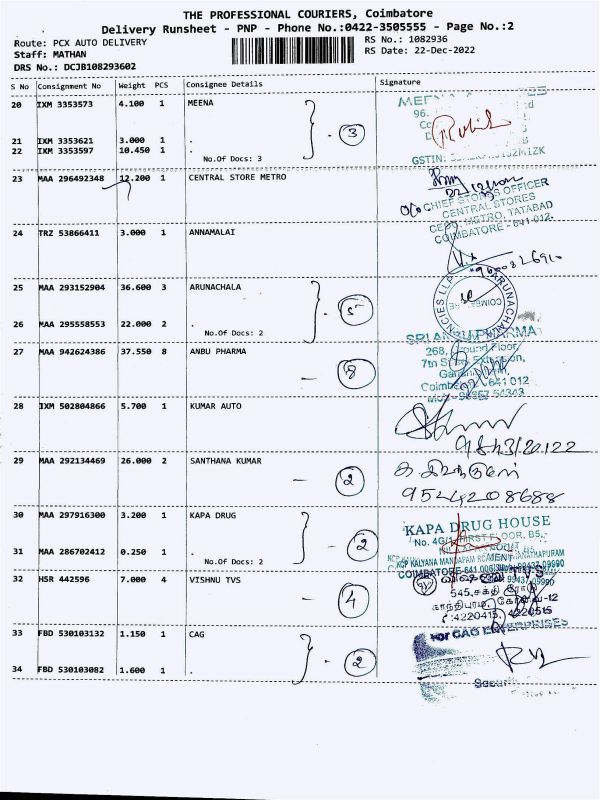 THE PROFESSIONAL COURIERS, Coimbatore
Delivery Runsheet - PNP - Phone No.:0422-3505555 - Page No.:2
Route: PCX AUTO DELIVERY
RS No.: 1082936
Staff: MATHAN
RS Date: 22-Dec-2022
DRS No.: DCJB108293602
S No Consignment No Weight PCS Consignee Details Signature
20 IXM 3353573 4.100 1 MEENA
21 IXM 3353621 3.000 1 .
22 IXM 3353597 10.450 1 .
No.Of Docs: 3
3
GSTIN:
23 MAA 296492348 12.200 1 CENTRAL STORE METRO
CHIEF STORES OFFICER
CENTRAL STORES
METRO, TATABAD
COIMBATORE - 641 012.
24 TRZ 53866411 3.000 1 ANNAMALAI
25 MAA 293152904 36.600 3 ARUNACHALA
26 MAA 295558553 22.000 2 .
No.Of Docs: 2
5
27 MAA 942624386 37.550 8 ANBU PHARMA
- 8
268, Ground Floor,
641 012
28 IXM 502804866 5.700 1 KUMAR AUTO
29 MAA 292134469 26.000 2 SANTHANA KUMAR
- 2
9544208688
30 MAA 297916300 3.200 1 KAPA DRUG
31 MAA 286702412 0.250 1 .
No.Of Docs: 2
- 2
KAPA DRUG HOUSE
FIRST FLOOR, B5,
32 HSR 442596 7.000 4 VISHNU TVS
- 4
545,சக்தி ரோடு
:4220415, 4220515
33 FBD 530103132 1.150 1 CAG
For CAG ENTERPRISES
34 FBD 530103082 1.600 1 .
- 2